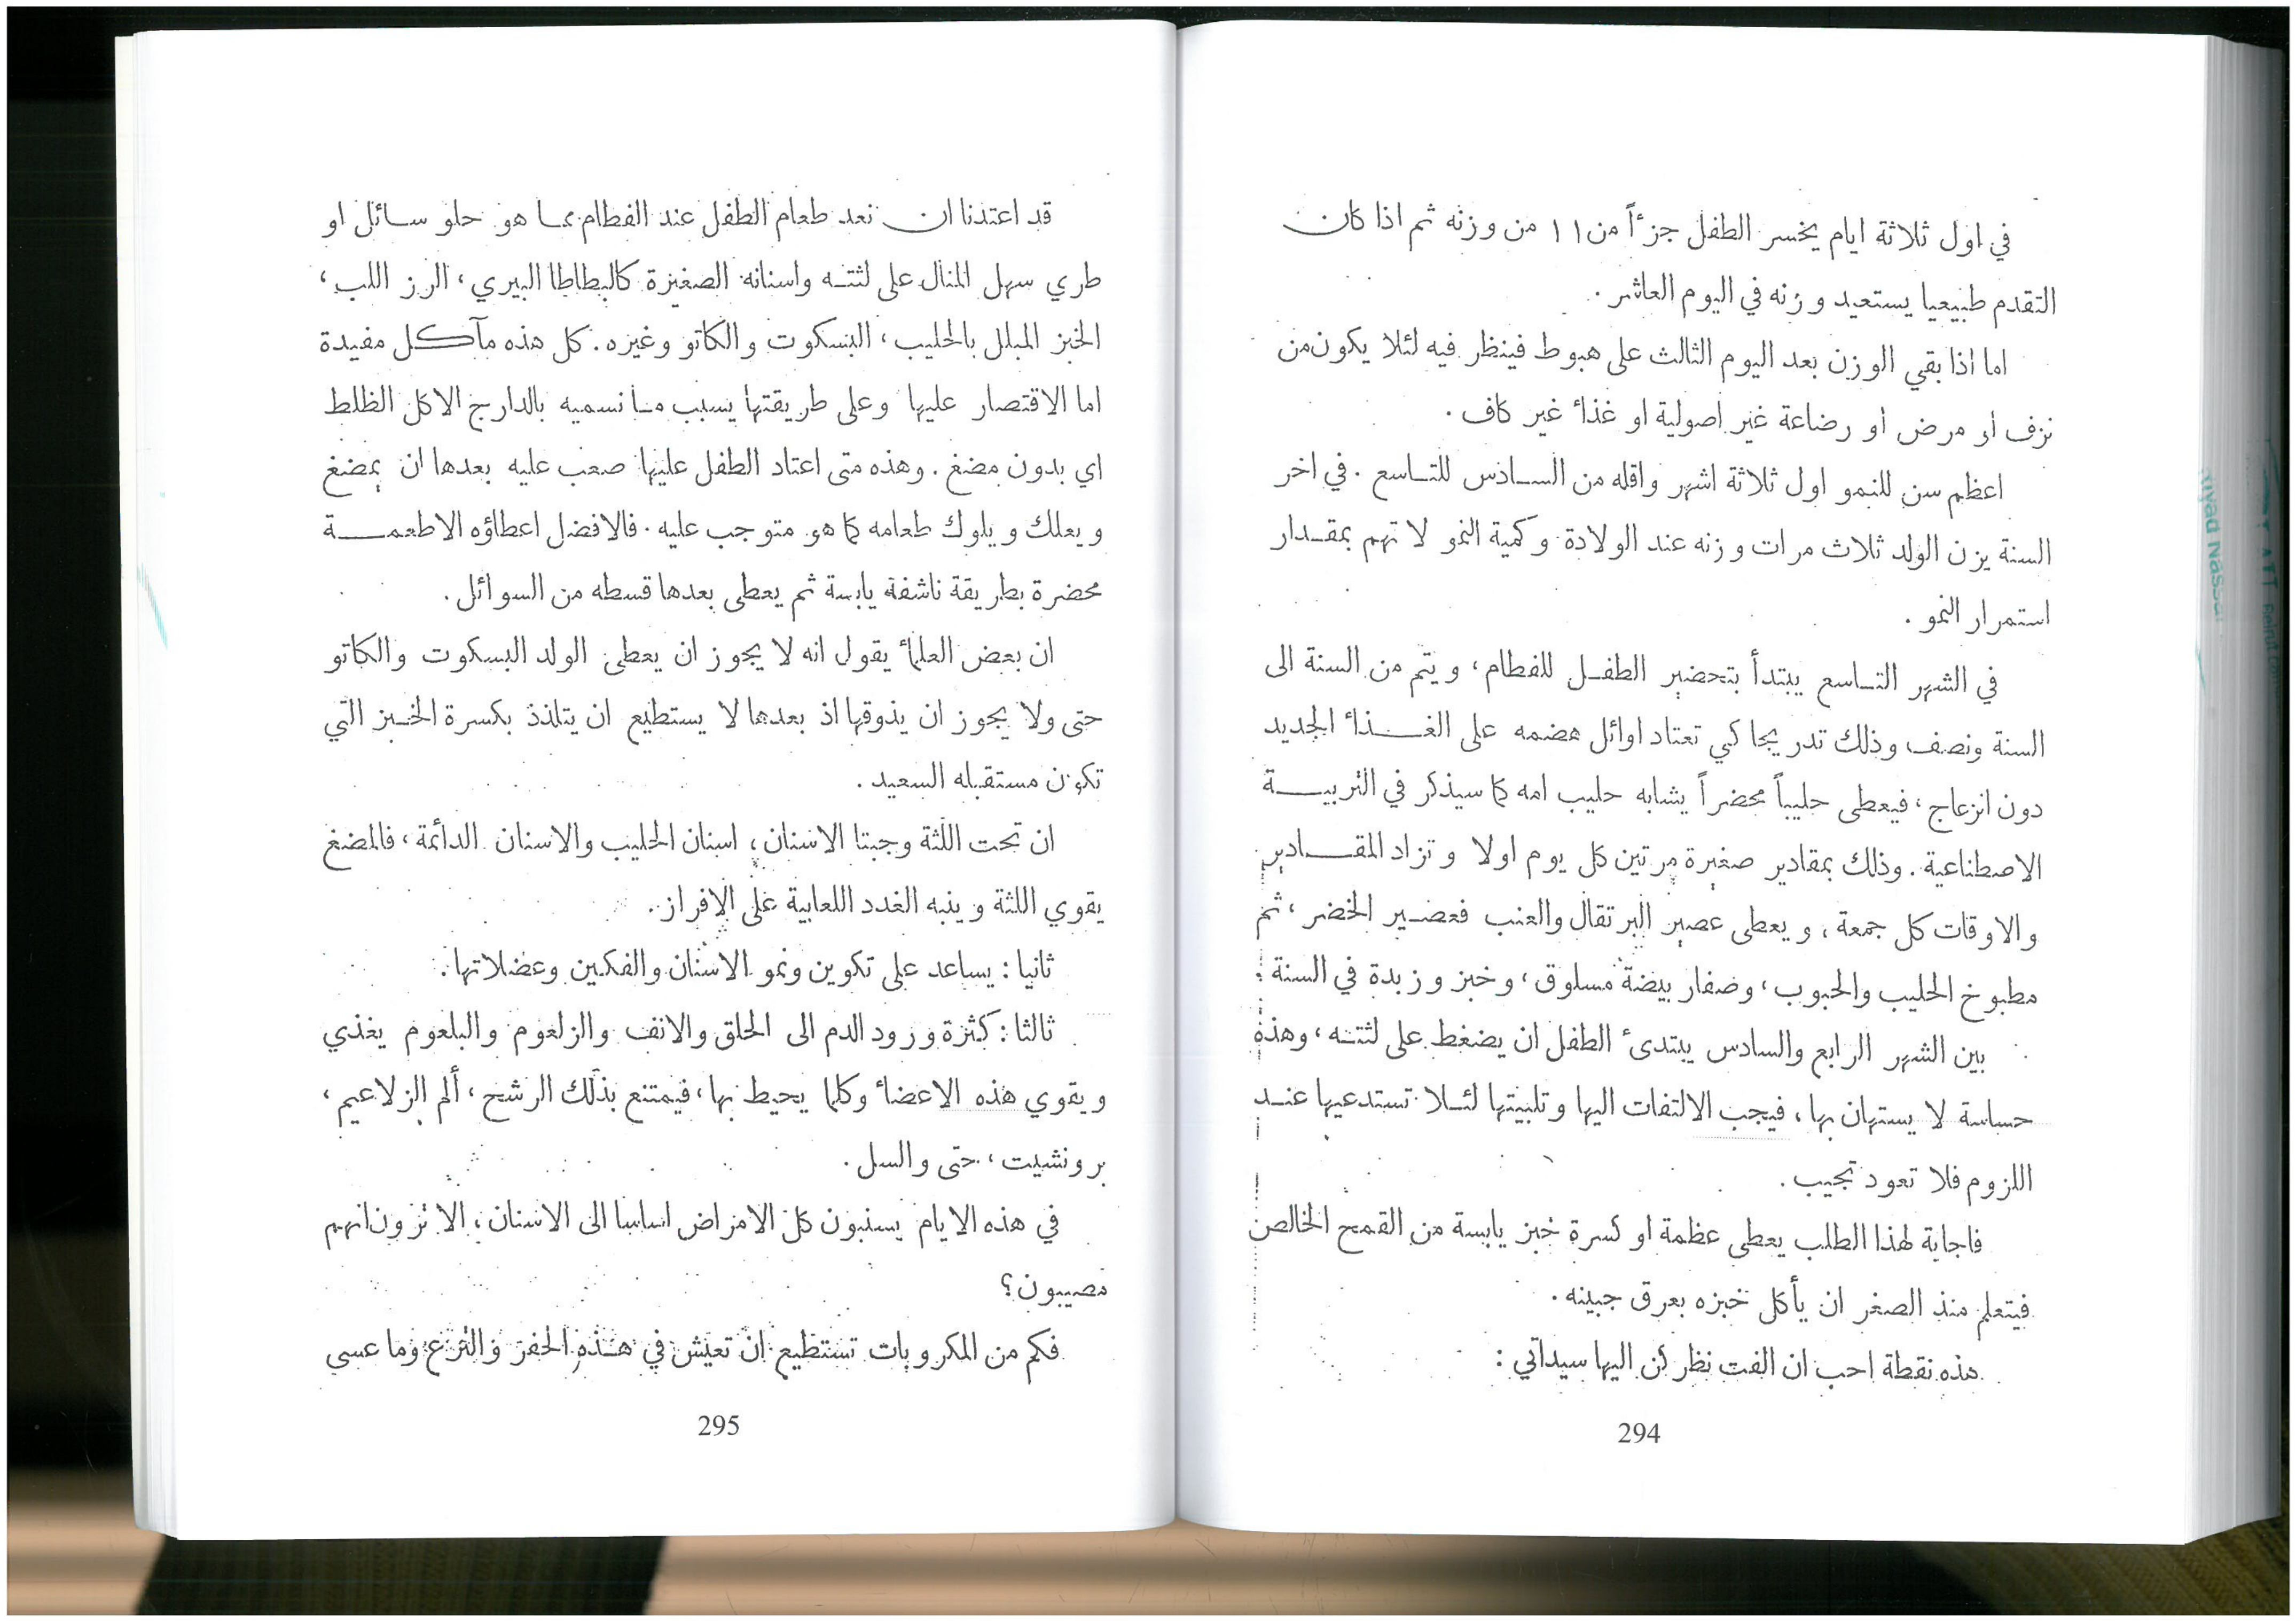 في اول ثلاثة ايام يخسر الطفل جزءاً من ١١ من وزنه ثم اذا كان
التقدم طبيعيا يستعيد وزنه في اليوم العاشر .
اما اذا بقي الوزن بعد اليوم الثالث على هبوط فينظر فيه لئلا يكون من
نزف او مرض او رضاعة غير اصولية او غذاء غير كاف .
اعظم سن للنمو اول ثلاثة اشهر واقله من السادس للتاسع . في اخر
السنة يزن الولد ثلاث مرات وزنه عند الولادة وكمية النمو لا تهم بمقدار
استمرار النمو .
في الشهر التاسع يبتدأ بتحضير الطفل للفطام ، ويتم من السنة الى
السنة ونصف وذلك تدريجا كي تعتاد اوائل هضمه على الغذاء الجديد
دون انزعاج ، فيعطى حليباً محضراً يشابه حليب امه كما سيذكر في التربية
الاصطناعية . وذلك بمقادير صغيرة مرتين كل يوم اولا وتزاد المقادير
والاوقات كل جمعة ، ويعطى عصير البرتقال والعنب فعصير الخضر ، ثم
مطبوخ الحليب والحبوب ، وصفار بيضة مسلوق ، وخبز وزبدة في السنة .
بين الشهر الرابع والسادس يبتدىء الطفل ان يضغط على لثته ، وهذه
حساسة لا يستهان بها ، فيجب الالتفات اليها وتلبيتها لئلا تستدعيها عند
اللزوم فلا تعود تجيب .
فاجابة لهذا الطلب يعطى عظمة او كسرة خبز يابسة من القمح الخالص
فيتعلم منذ الصغر ان يأكل خبزه بعرق جبينه .
هذه نقطة احب ان الفت نظركن اليها سيداتي :
294
قد اعتدنا ان نعد طعام الطفل عند الفطام مما هو حلو سائل او
طري سهل المنال على لثته واسنانه الصغيرة كالبطاطا البيري ، الرز اللب ،
الخبز المبلل بالحليب ، البسكوت والكاتو وغيره . كل هذه مآكل مفيدة
اما الاقتصار عليها وعلى طريقتها يسبب ما نسميه بالدارج الاكل الظلط
اي بدون مضغ . وهذه متى اعتاد الطفل عليها صعب عليه بعدها ان يمضغ
ويعلك ويلوك طعامه كما هو متوجب عليه . فالافضل اعطاؤه الاطعمة
محضرة بطريقة ناشفة يابسة ثم يعطى بعدها قسطه من السوائل .
ان بعض العلماء يقول انه لا يجوز ان يعطى الولد البسكوت والكاتو
حتى ولا يجوز ان يذوقها اذ بعدها لا يستطيع ان يتلذذ بكسرة الخبز التي
تكون مستقبله السعيد .
ان تحت اللثة وجبتا الاسنان ، اسنان الحليب والاسنان الدائمة ، فالمضغ
يقوي اللثة وينبه الغدد اللعابية على الافراز .
ثانيا : يساعد على تكوين ونمو الاسنان والفكين وعضلاتها .
ثالثا : كثرة ورود الدم الى الحلق والانف والزلعوم والبلعوم يغذي
ويقوي هذه الاعضاء وكلما يحيط بها ، فيمتنع بذلك الرشح ، ألم الزلاعيم ،
برونشيت ، حتى والسل .
في هذه الايام ينسبون كل الامراض اساسا الى الاسنان ، الا ترون انهم
مصيبون ؟
فكم من المكروبات تستطيع ان تعيش في هذه الحفر والترع وما عسى
295